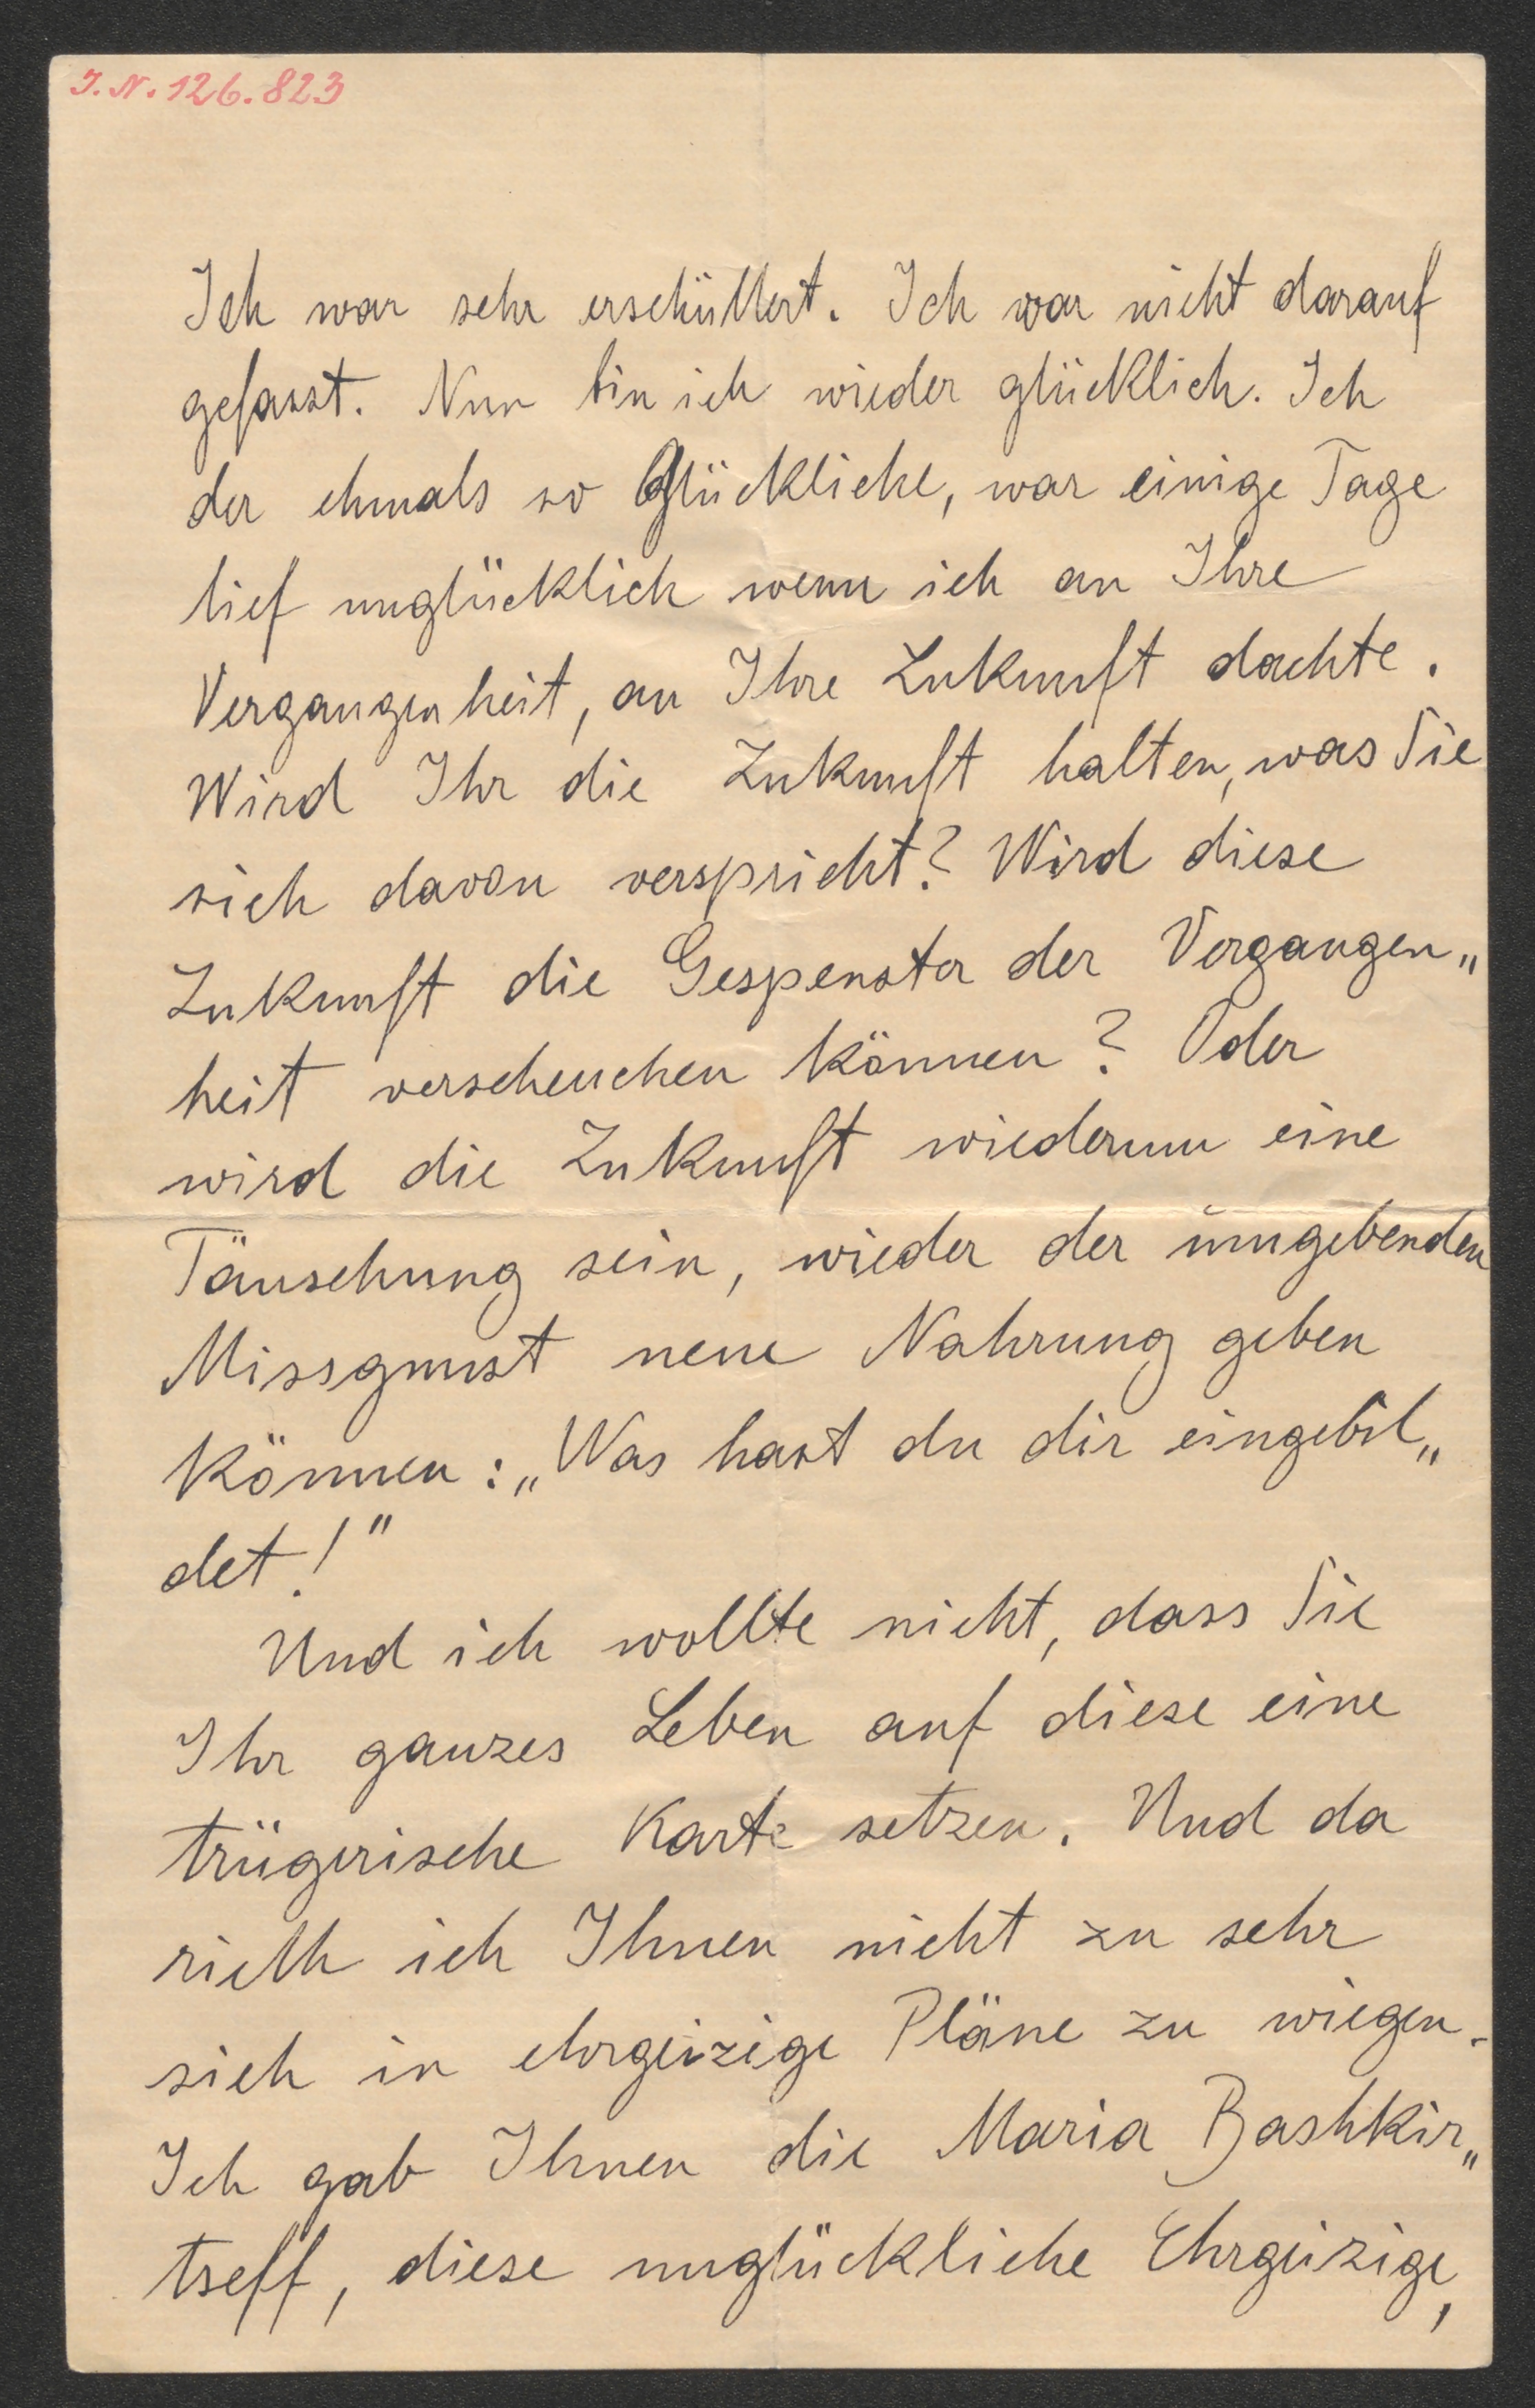 J. N. 126.823
Ich war sehr erschüttert. Ich war nicht darauf
gefasst. Nun bin ich wieder glücklich. Ich
der ehmals so Glückliche, war einige Tage
tief unglücklich wenn ich an Ihre
Vergangenheit, an Ihre Zukunft dachte.
Wird Ihr die Zukunft halten, was Sie
sich davon verspricht? Wird diese
Zukunft die Gespenster der Vergangen„
heit verscheuchen können? Oder
wird die Zukunft wiederum eine
Täuschung sein, wieder der umgebenden
Missgunst neue Nahrung geben
können: „Was hast du dir eingebil„
det!"
Und ich wollte nicht, dass Sie
Ihr ganzes Leben auf diese eine
trügerische Karte setzen. Und da
rieth ich Ihnen nicht zu sehr
sich in ehrgeizige Pläne zu wiegen.
Ich gab Ihnen die Maria Bashkir„
tseff, diese unglückliche Ehrgeizige,